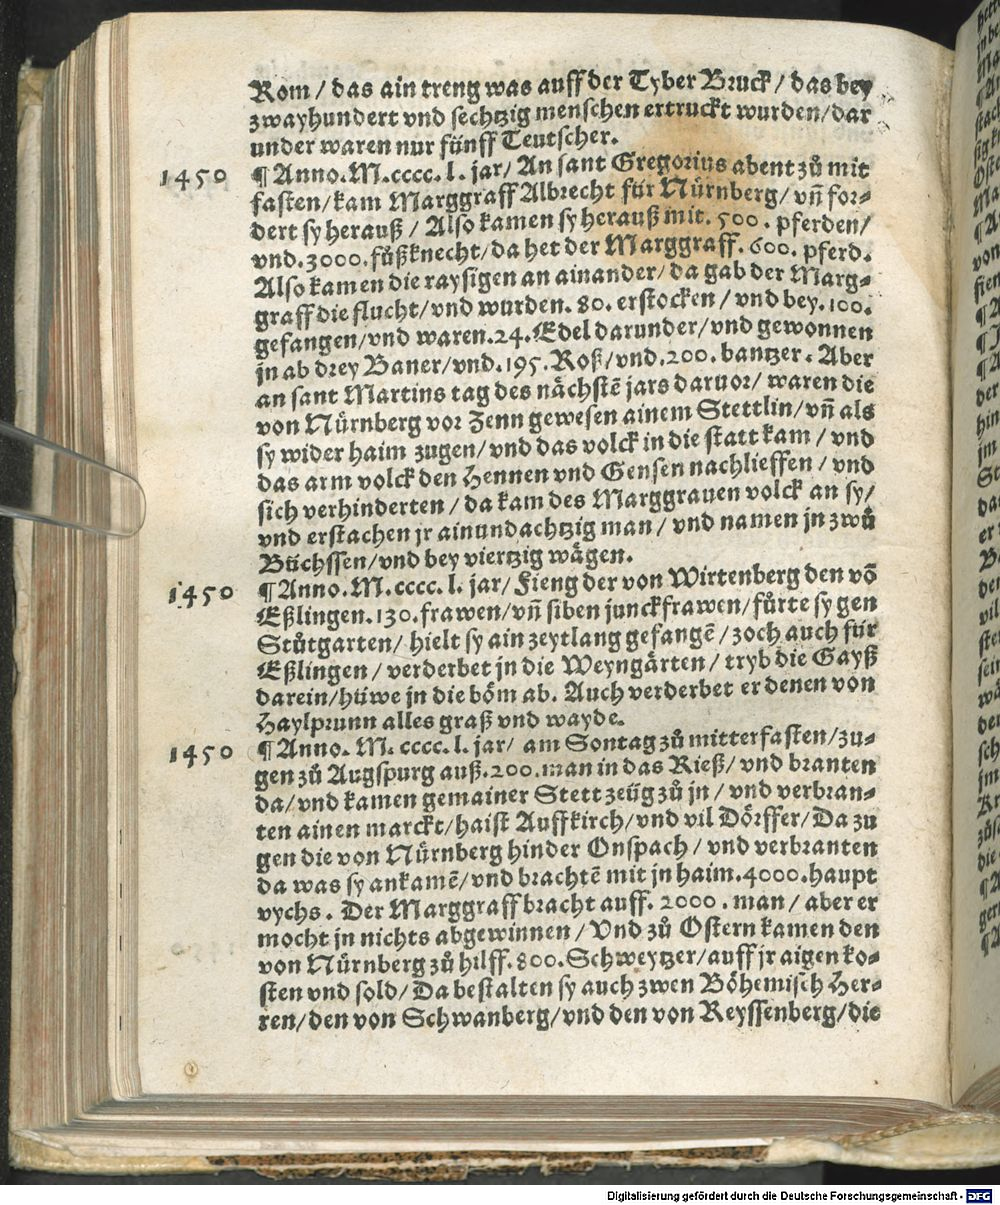 Rom / das ain treng was auff der Tyber Bruck / das bey
zwayhundert vnd sechtzig menschen ertruckt wurden / dar
under waren nur fünff Teutscher.
1450 ¶ Anno. M.cccc. l. jar / An sant Gregorius abent zů mit
fasten / kam Marggraff Albrecht für Nürnberg / vñ for⸗
dert sy herauß / Also kamen sy herauß mit. 500. pferden /
vnd. 3000. fůßknecht / da het der Marggraff. 600. pferd.
Also kamen die raysigen an ainander / da gab der Marg⸗
graff die flucht / vnd wurden. 80. erstocken / vnd bey. 100.
gefangen / vnd waren. 24. Edel darunder / vnd gewonnen
jn ab drey Baner / vnd. 195. Roß / vnd. 200. bantzer. Aber
an sant Martins tag des nächstē jars daruor / waren die
von Nürnberg vor Zenn gewesen ainem Stettlin / vñ als
sy wider haim zugen / vnd das volck in die statt kam / vnd
das arm volck den Hennen vnd Gensen nachlieffen / vnd
sich verhinderten / da kam des Marggrauen volck an sy /
vnd erstachen jr ainundachtzig man / vnd namen jn zwů
Büchssen / vnd bey viertzig wägen.
1450 ¶ Anno. M. cccc. l. jar / Fieng der von Wirtenberg den vō
Eßlingen. 130. frawen / vñ siben junckfrawen / fůrte sy gen
Stůtgarten / hielt sy ain zeytlang gefangē / zoch auch für
Eßlingen / verderbet jn die Weyngärten / tryb die Gayß
darein / hüwe jn die böm ab. Auch verderbet er denen von
Haylprunn alles graß vnd wayde.
1450 ¶ Anno. M. cccc. l. jar / am Sontag zů mitterfasten / zu⸗
gen zů Augspurg auß. 200. man in das Rieß / vnd branten
da / vnd kamen gemainer Stett zeüg zů jn / vnd verbran⸗
ten ainen marckt / haist Auffkirch / vnd vil Dörffer / Da zu
gen die von Nürnberg hinder Onspach / vnd verbranten
da was sy ankamē / vnd brachtē mit jn haim. 4000. haupt
vychs. Der Marggraff bracht auff. 2000. man / aber er
mocht jn nichts abgewinnen / Vnd zů Ostern kamen den
von Nürnberg zů hilff. 800. Schweytzer / auff jr aigen ko⸗
sten vnd sold / Da bestalten sy auch zwen Böhemisch Her⸗
ren / den von Schwanberg / vnd den von Reyssenberg / die
Digitalisierung gefördert durch die Deutsche Forschungsgemeinschaft - DFG